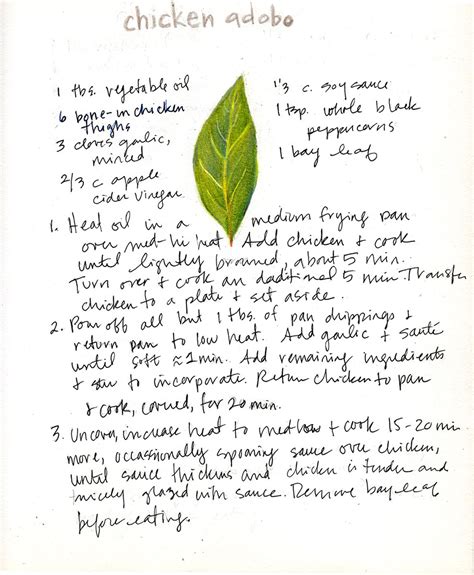 chicken adobo
1 tbs. vegetable oil
6 bone-in chicken
thighs
3 cloves garlic,
minced
2/3 c apple
cider vinegar
1/3 c. soy sauce
1 tsp. whole black
peppercorns
1 bay leaf
1. Heat oil in a medium frying pan
over med-hi heat Add chicken + cook
until lightly browned, about 5 min.
Turn over + cook an daditional 5 min. Transfer
chicken to a plate + set aside.
2. Pour off all but 1 tbs. of pan drippings +
return pan to low heat. Add garlic + sauté
until soft ≈ 1 min. Add remaining ingredients
+ stir to incorporate. Return chicken to pan
+ cook, covered, for 20 min.
3. Uncover, increase heat to med low + cook 15-20 min
more, occassionally spooning sauce over chicken,
until sauce thickens and chicken is tender and
nicely glazed with sauce. Remove bay leaf
before eating.